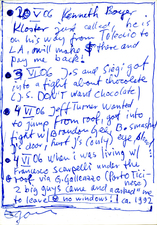 2 VI 06 Kenneth Boyer
Kloster just called, he is
on his way from Toledo to
L.A., will make there and
Pay me back!
3 VI 06 J.S and Siegi got
into a fight about chocolate
(J.S. DON'T want chocolate)
4 VI 06 Jeff Turner wanted
to jump from roof, got into
fight w/ Brandon Gee, B. smashed
door, hurt J's (only) eye
VI 06 when I was living w/
Francesco Scarpelli under the
roof via G. Galeazzo (Porto Tici-
nese) 2 big guys came and asked me
to leave no windows! ca. 1992